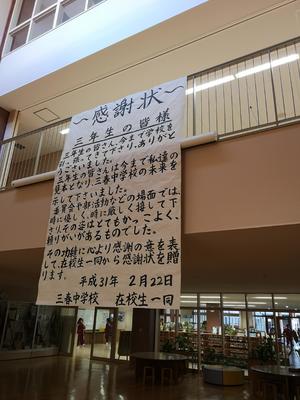 ～感謝状～
三年生の皆様
三年生の皆さん、今まで学校を
引っ張ってきて下さり、ありがと
うございました。
三年生の皆さんは今まで私達の
見本となり、三春中学校の未来を
示して下さいました。
委員会や部活動などの場面では、
時に優しく、時に厳しく接して下
さり、その姿はとてもかっこよく、
頼りがいがあるものでした。
その功績に心より感謝の意を表
して、在校生一同から感謝状を贈
ります。
平成31年 2月22日
三春中学校 在校生一同